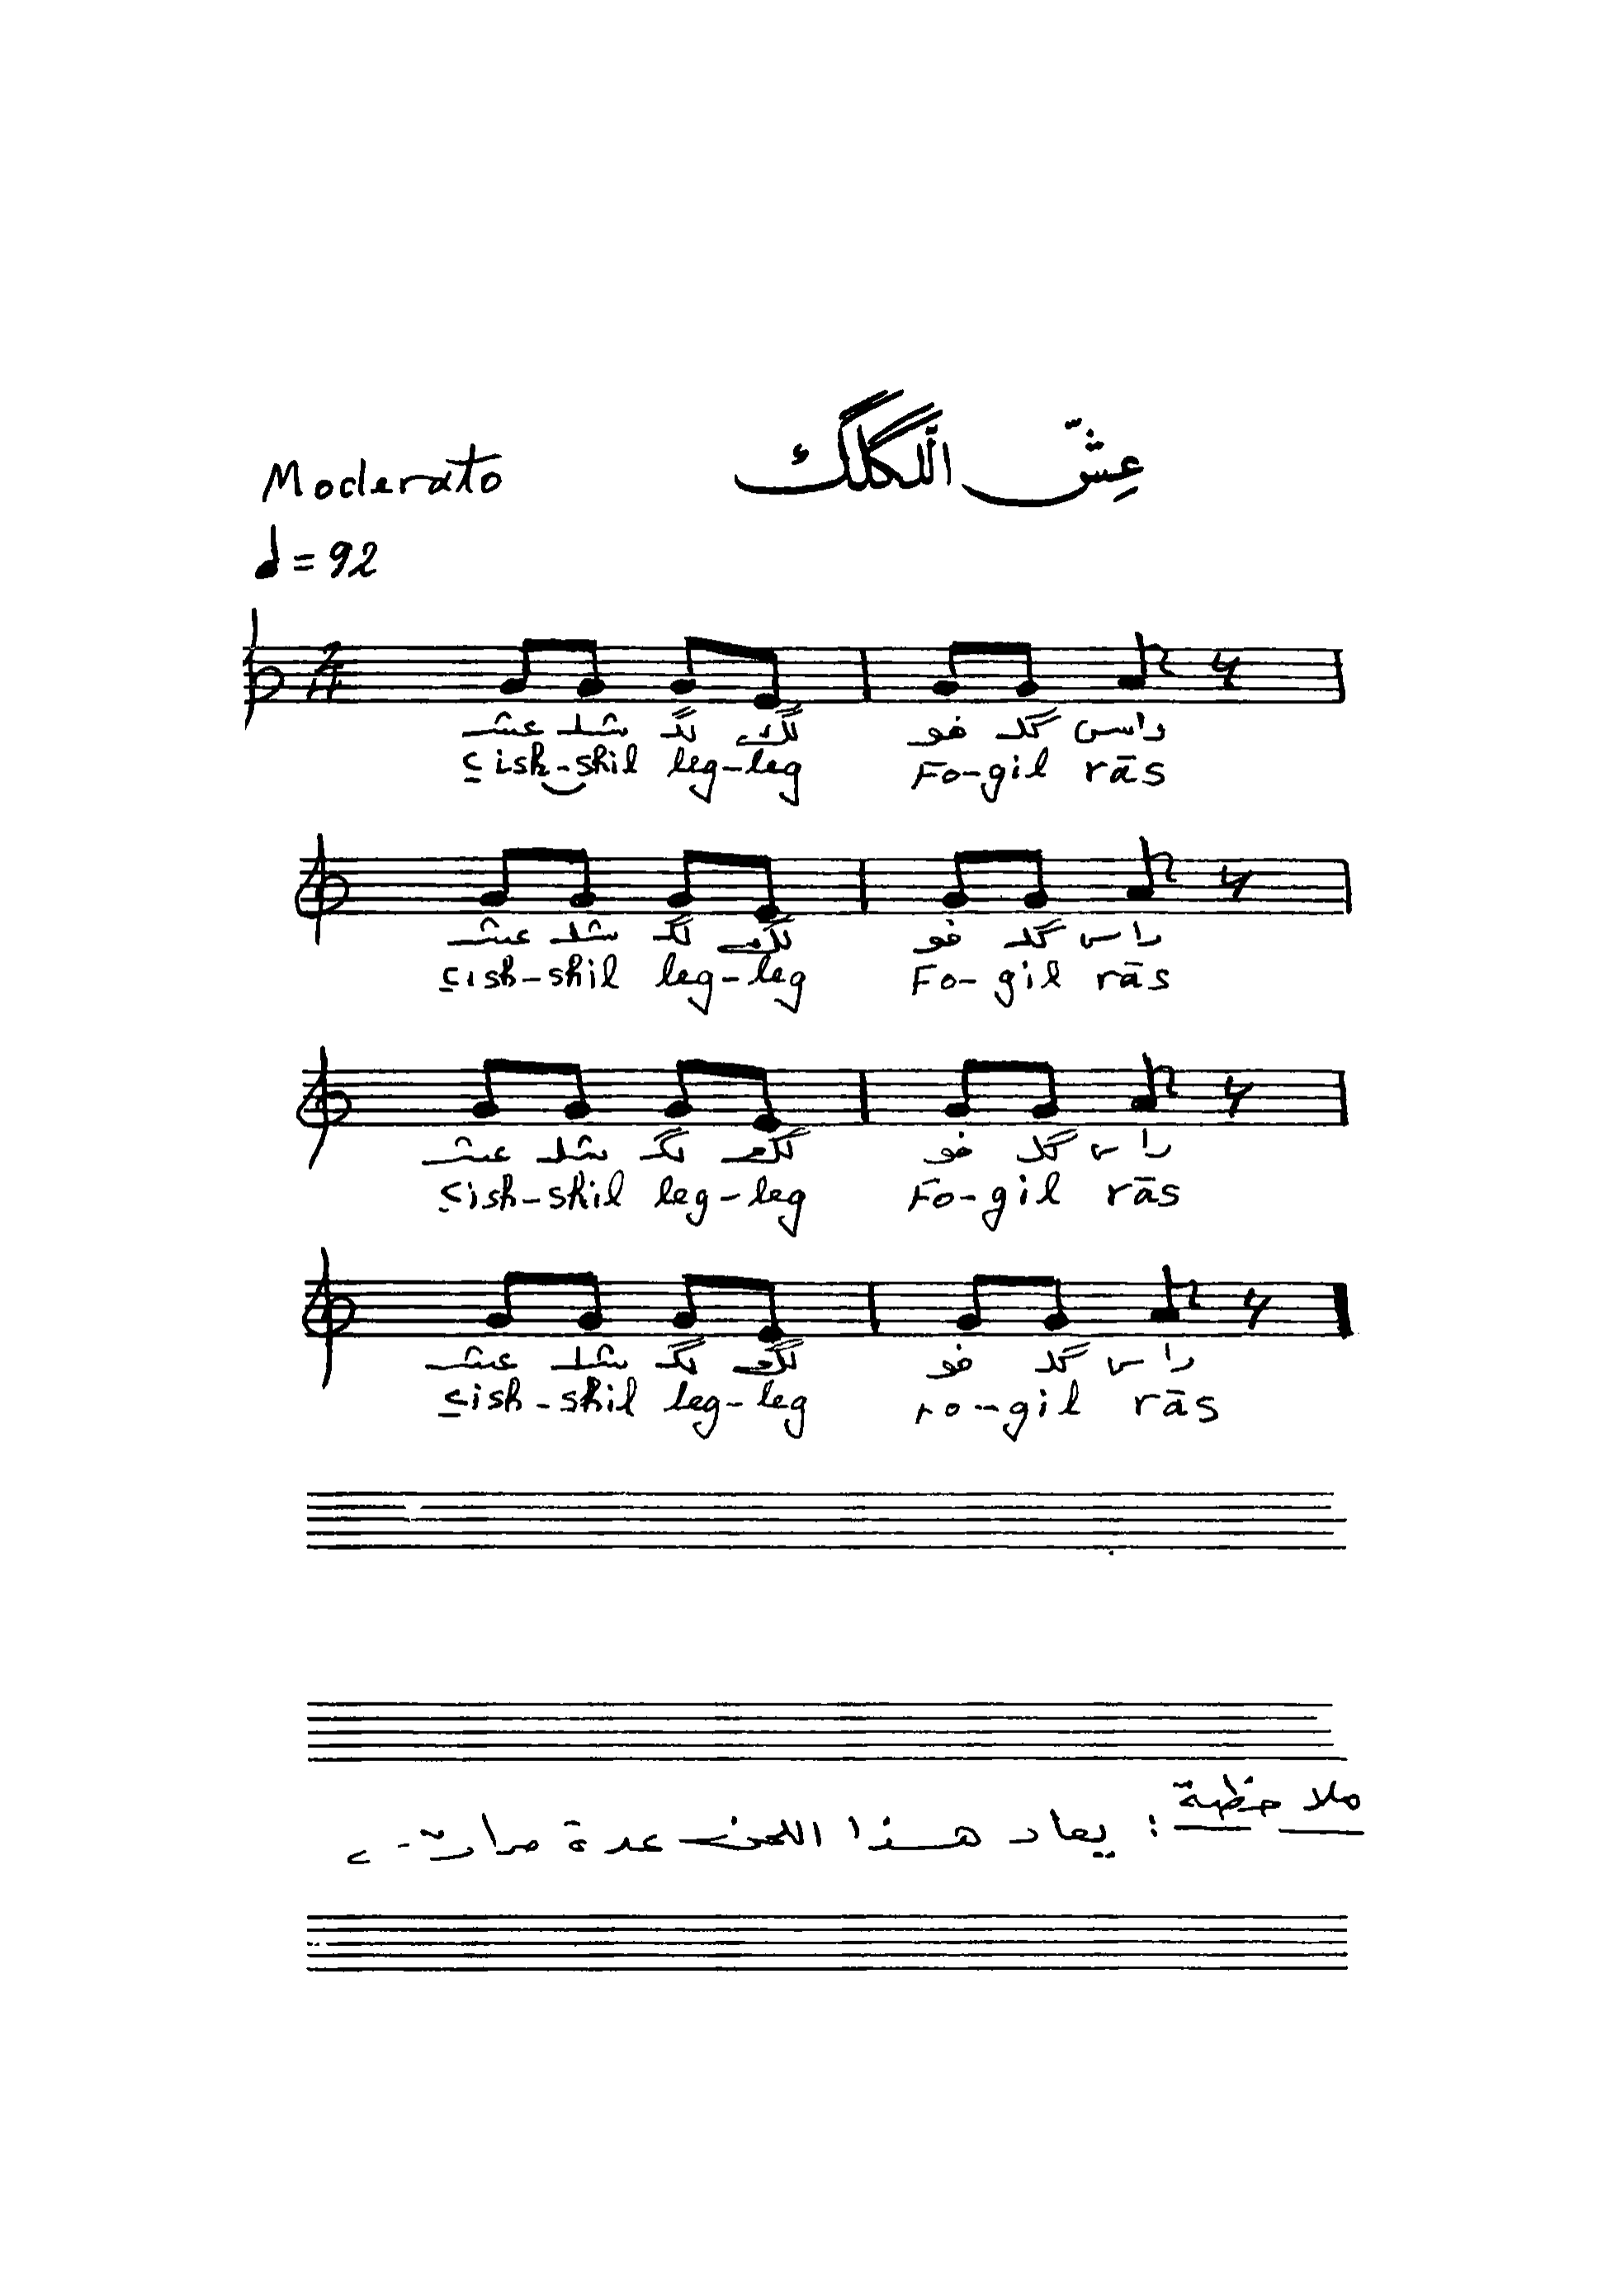 عِشّ اللّگلگ
Moderato
♩ = 92
عش شلـ لگ لگ فو گلـ راس
cish-shil leg-leg Fo-gil rās
عش شلـ لگ لگ فو گلـ راس
cish-shil leg-leg Fo-gil rās
عش شلـ لگ لگ فو گلـ راس
cish-shil leg-leg Fo-gil rās
عش شلـ لگ لگ فو گلـ راس
cish-shil leg-leg Fo-gil rās
ملاحظة : يعاد هذا اللحن عدة مرات .